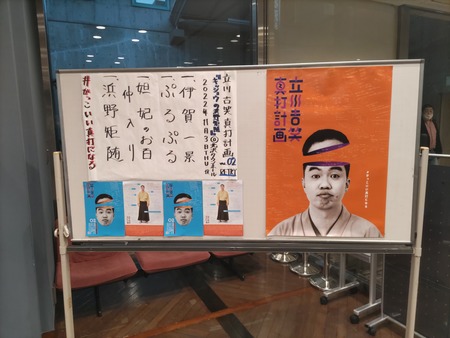 立川吉笑 真打計画 02
2022年11月3日THU
一、伊賀一景
一、ぷるぷる
一、妲妃のお白
仲入り
一、浜野矩随
#かっこいい真打になる
立川吉笑
真打計画